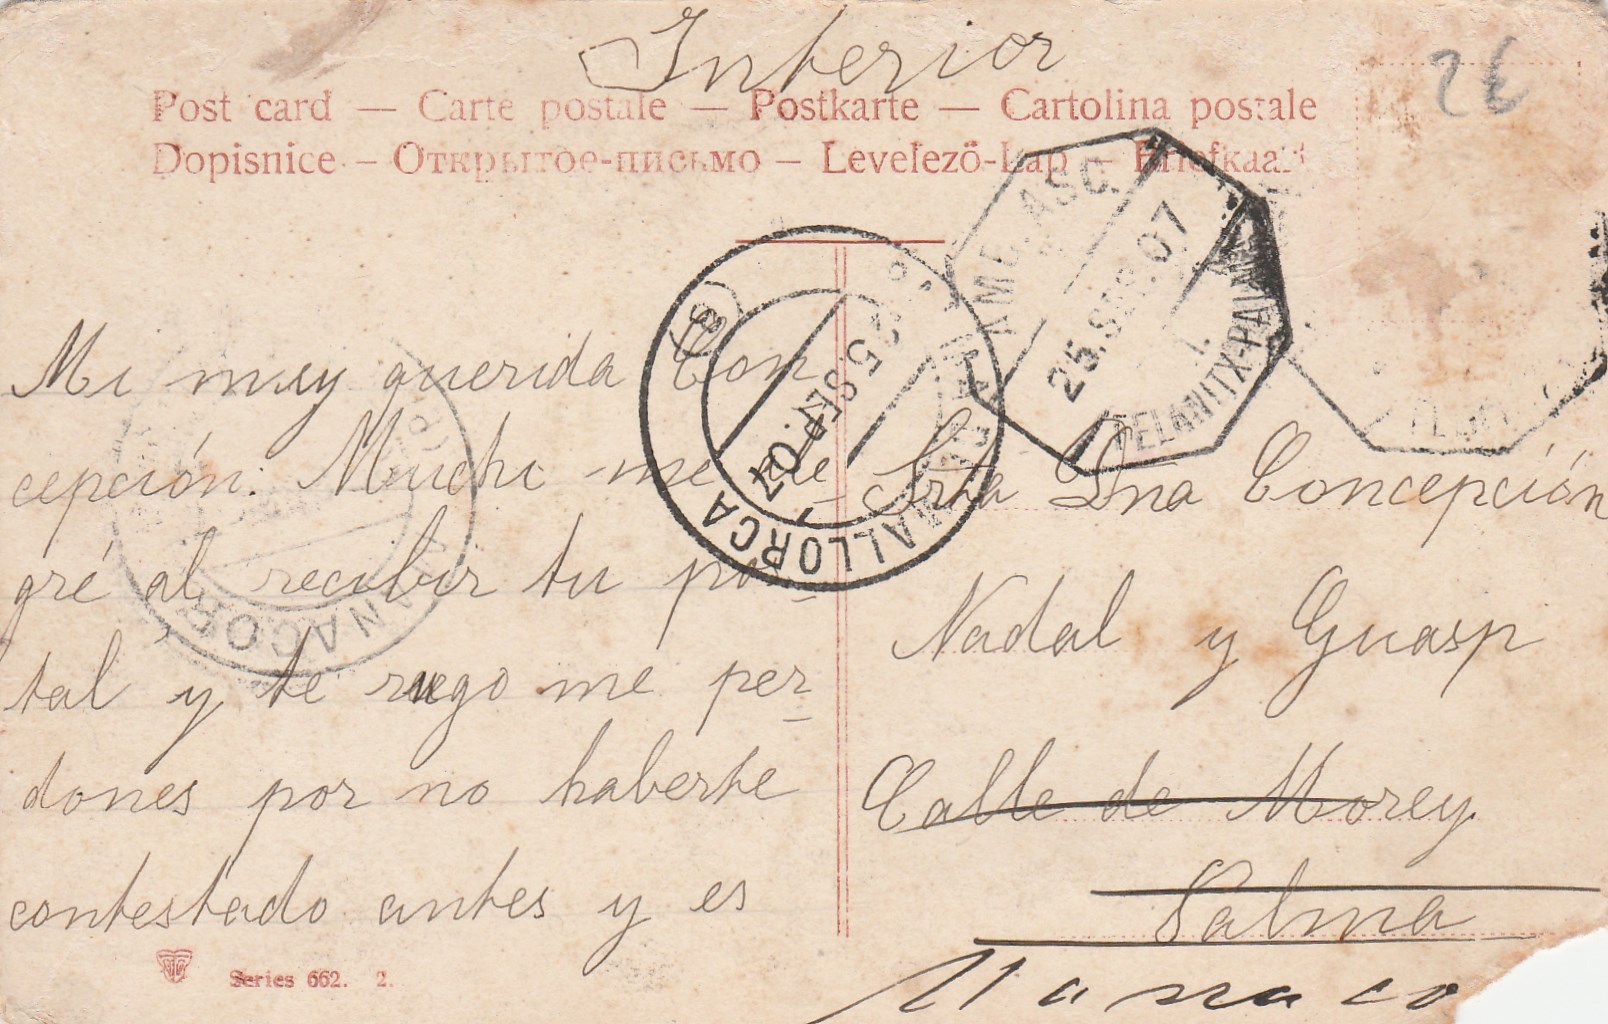 Interior
26
Post card — Carte postale — Postkarte — Cartolina postale
Dopisnice – Открытое-письмо – Levelező-Lap – Briefkaart
AMB. ASC.
25.SEP.07
FELANITX-PALMA
25.SEP.07
MALLORCA
MANACOR
Mi muy querida Con
cepción: Mucho me ale
gré al recibir tu pos-
tal y te ruego me per-
dones por no haberte
contestado antes y es
Srta Dna Concepción
Nadal y Guasp
Calle de Morey
Palma
Manaco
Series 662. 2.